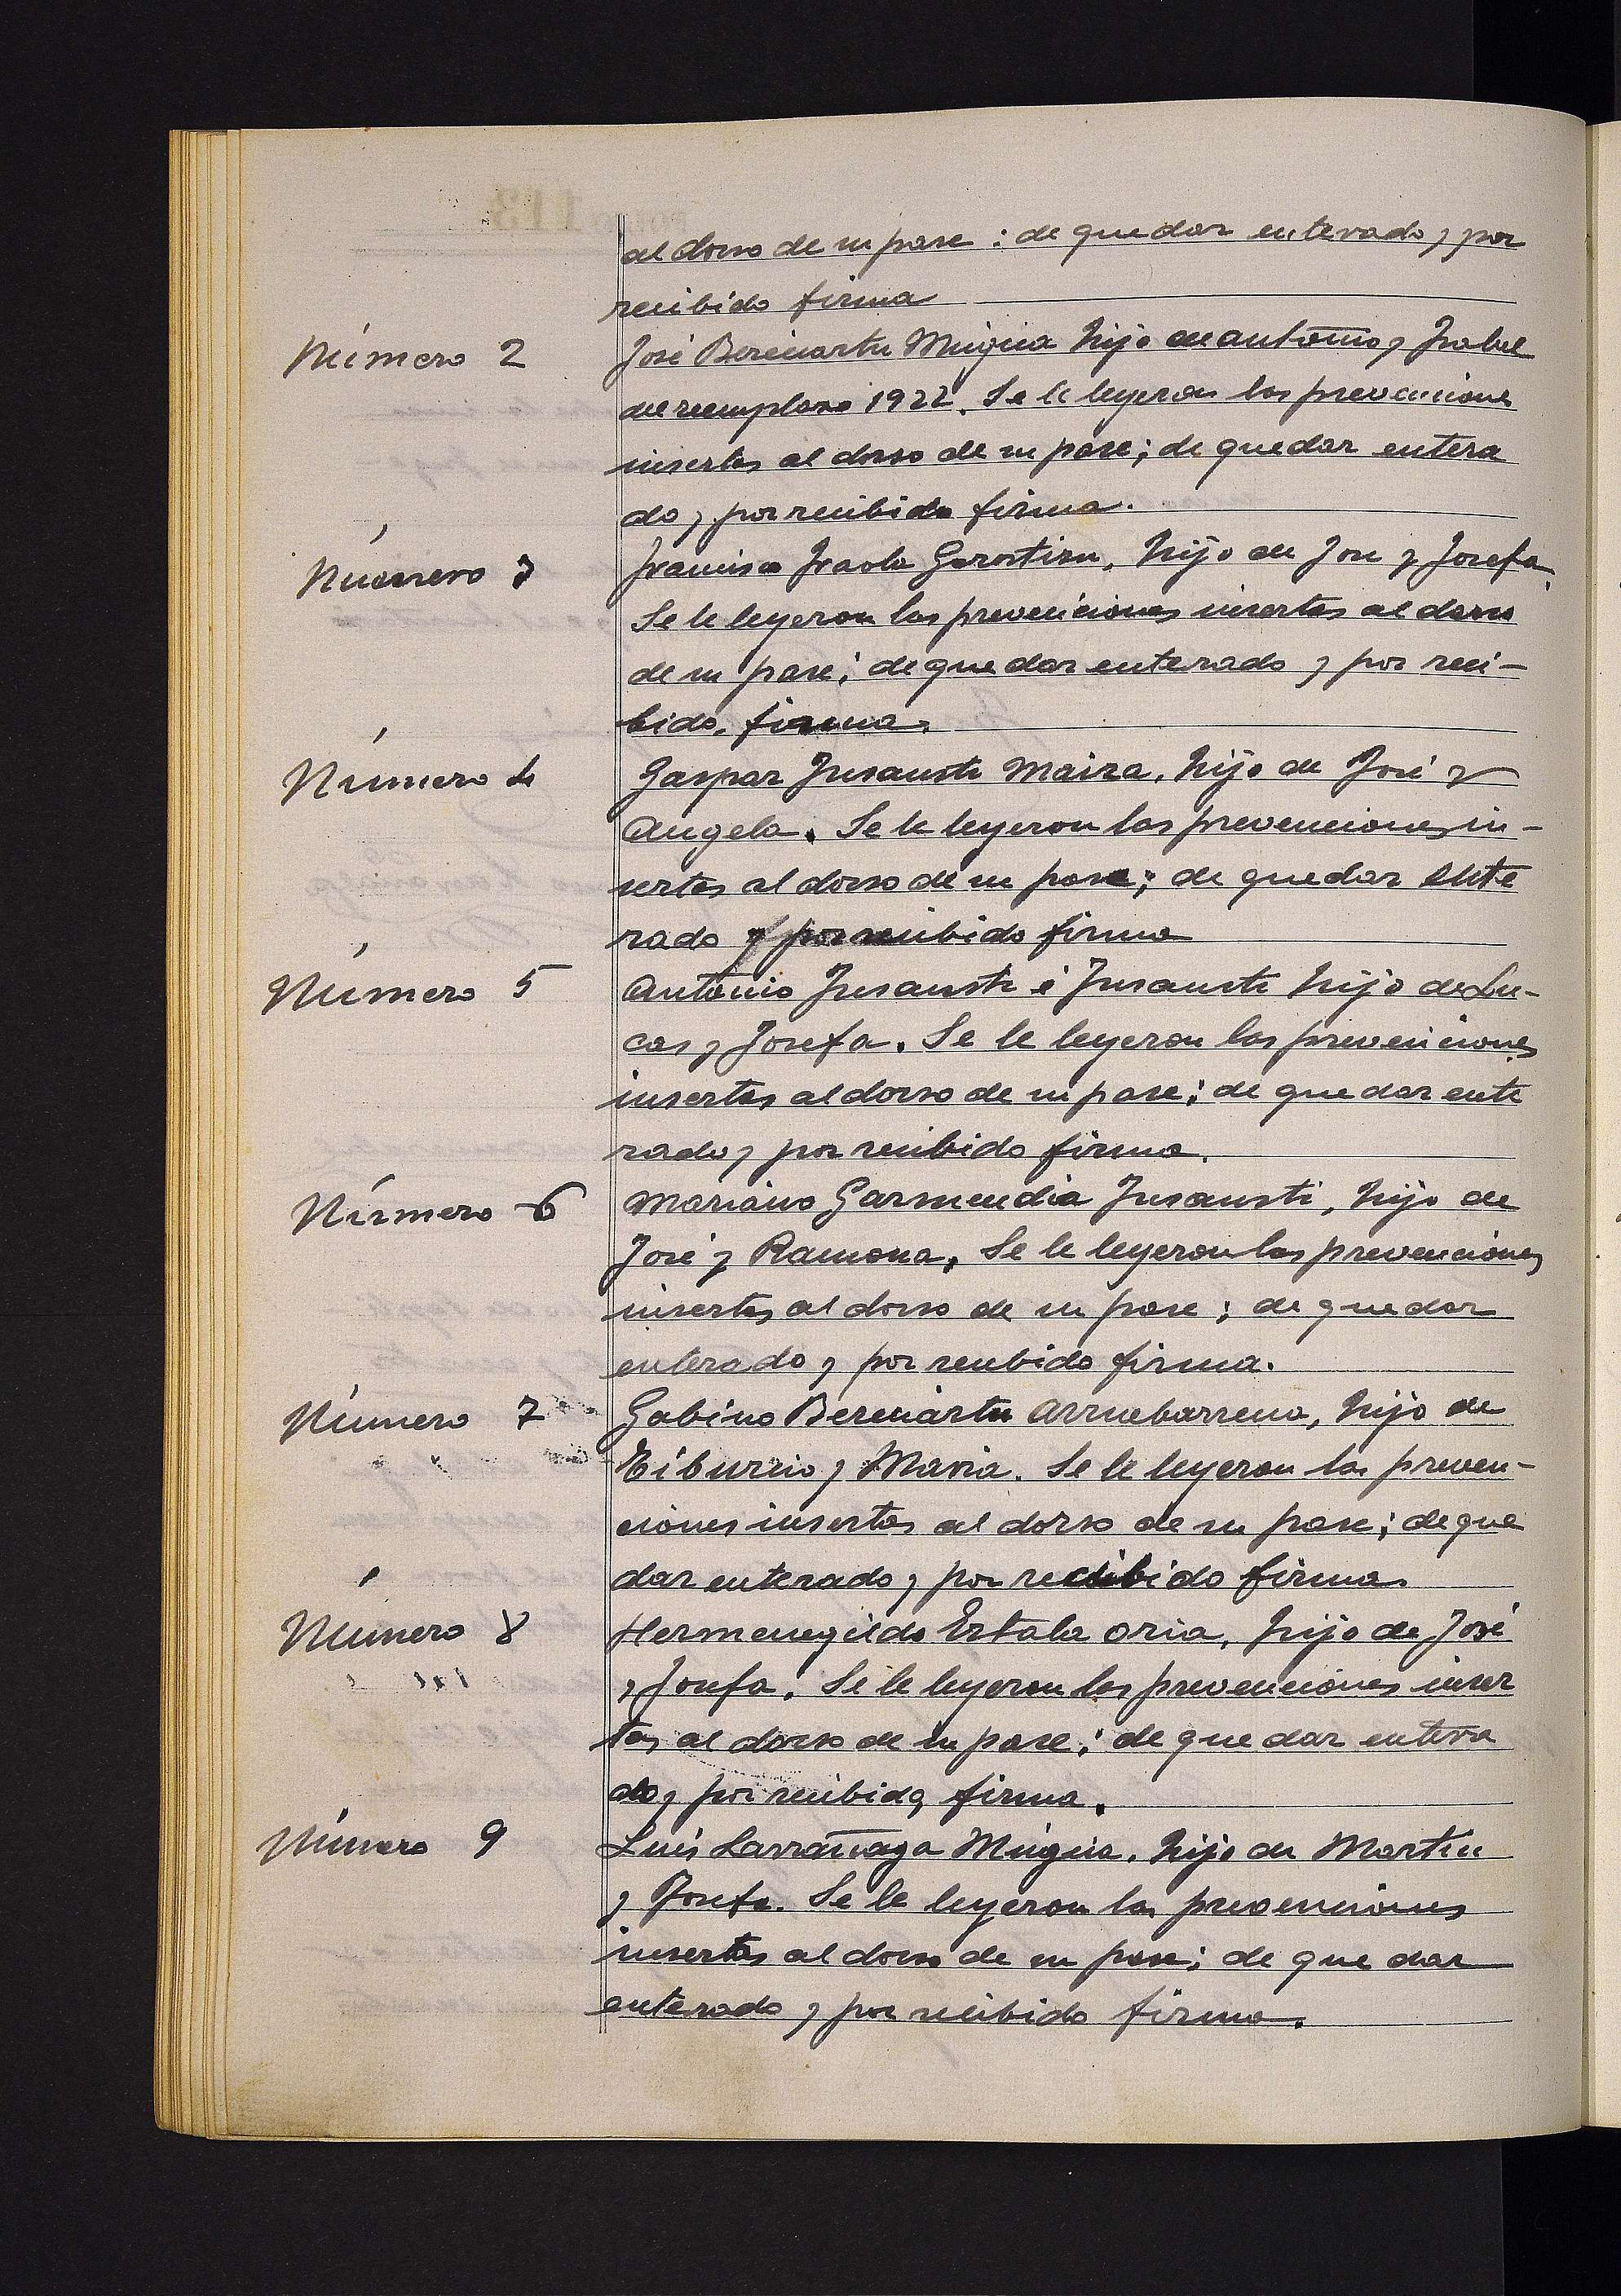 al dorso de su pase: de quedar enterado y por
recibido firma
Número 2
José Bereciartu Mugica hijo de Antonio y Isabel
del reemplazo 1922. Se le leyeron las prevenciones
insertas al dorso de su pase; de quedar entera
do y por recibido firma.
Número 3
Francisco Iraola Garostizu, hijo de Jose y Josefa.
Se le leyeron las prevenciones insertas al dorso
de su pase; de quedar enterado y por reci-
bido, firma.
Número 4
Gaspar Insausti Maiza, hijo de José y
Angela. Se le leyeron las prevenciones in-
sertas al dorso de su pase; de quedar ente
rado y por recibido firma
Número 5
Antonio Insausti é Insausti hijo de Lu-
cas y Josefa. Se le leyeron las prevenciones
insertas al dorso de su pase; de quedar ente
rado y por recibido firma.
Número 6
Mariano Garmendia Insausti, hijo de
José y Ramona, Se le leyeron las prevenciones
insertas al dorso de su pase; de quedar
enterado y por recibido firma.
Número 7
Gabino Bereciartu Arruebarrena, hijo de
Tiburcio y Maria. Se le leyeron las preven-
ciones insertas al dorso de su pase; de que
dar enterado y por recibido firma
Número 8
Hermenegildo Estala Oria, hijo de José
y Josefa. Se le leyeron las prevenciones inser
tas al dorso de su pase; de quedar entera
do y por recibido firma.
Número 9
Luis Larrañaga Múgica, hijo de Martin
y Josefa. Se le leyeron las prevenciones
insertas al dorso de su pase; de quedar
enterado y por recibido firma.